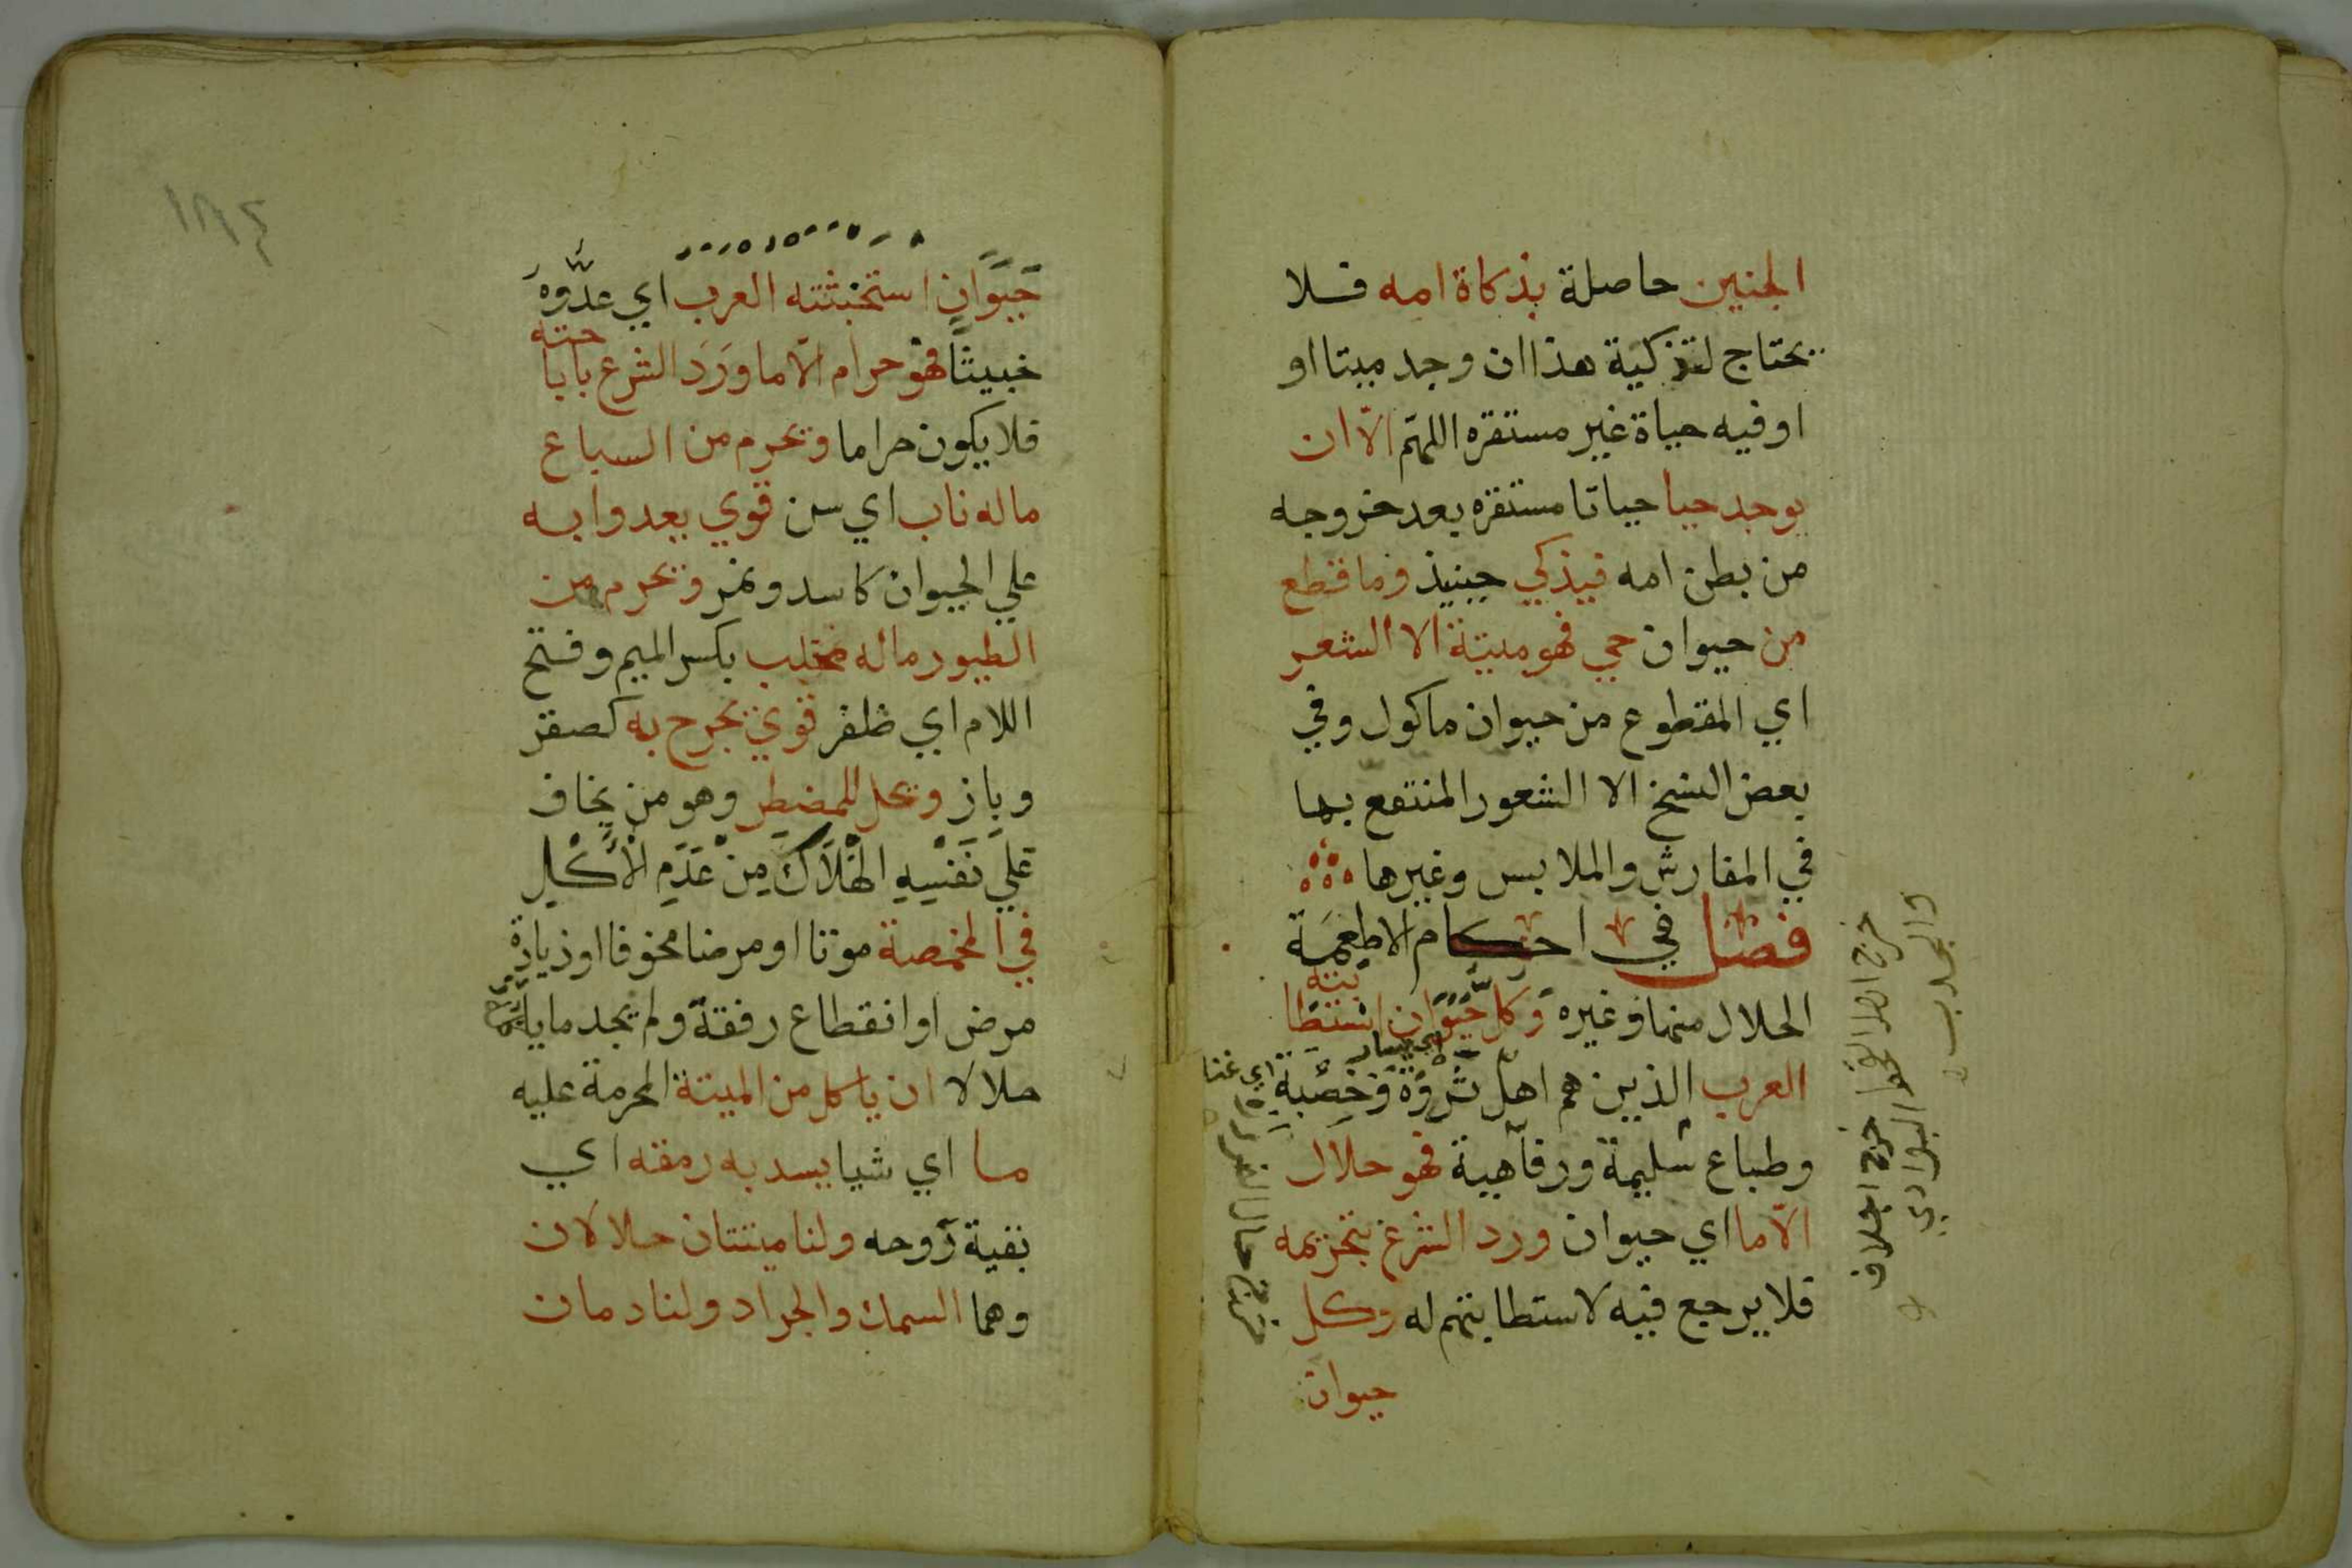 الجنين حاصلة بذكاة امه فلا
يحتاج لتذكية هذا ان وجد ميتا او
او فيه حياة غير مستقره اللهم الّا ان
يوجد حيا حياتا مستقره بعد خروجه
من بطن امه فيذكي حينيذ وما قطع
من حيوان حي فهو ميتة الا الشعر
اي المقطوع من حيوان ماكول وفي
بعض النسخ الا الشعور المنتفع بها
في المفارش والملابس وغيرها
فصل في احكام الاطعمَة
الحلال منها وغيره وَكل حَيَوَان استطا
بته
العرب الذين هم اهل ثروَة وَخصبة
اي يسار
اي غنا
وطباع سليمة ورفاهية فهو حلال
الّا ما اي حيوان ورد الشرع بتحريمه
فلا يرجع فيه لاستطابتهم له وكل
حيوان
خرج اجلاف البوادي
١٨٤
حَيَوَان استخبثته العرب اي عدّوهَ
خبيثًا فهو حرام الّا ما وَرَدَ الشرع باباا
حته
فلا يكون حراما ويحرم من السباع
ماله ناب اي سن قوي يعدوا به
علي الحيوان كاسد ونمر ويحرم من
الطيور ماله مخلب بكسر الميم وفتح
اللام اي ظفر قوي يجرح به كصقر
وباز ويحل للمضطر وهو من يخاف
عَلي نَفْسِهِ الْهَلَاكَ مِنْ عَدَمِ الْاَكْلِ
في المخمصة موتا او مرضا مخوفا او زيادة
مرض او انقطاع رفقة ولم يجد ما ياكله
حلالا ان ياكل من الميتة المحرمة عليه
ما اي شيا يسد به رمقه اي
بقية رَوحه ولنا ميتتان حلالان
وهما السمك والجراد ولنا دمان